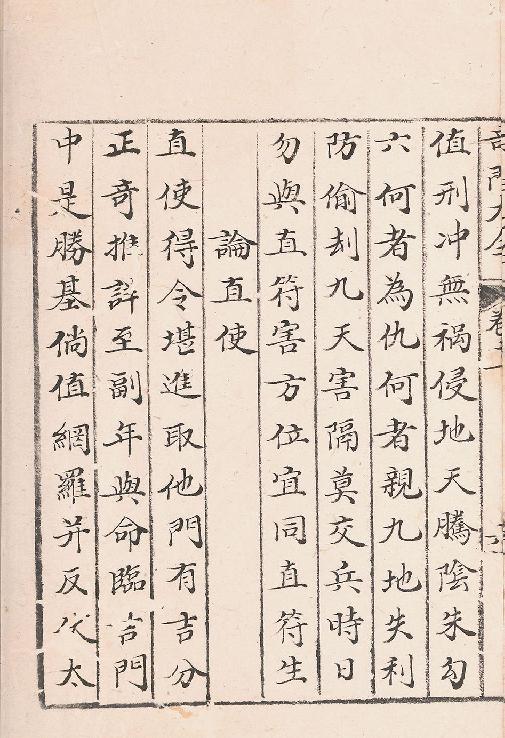 奇門大全
卷二
值刑冲無禍侵地天騰陰朱勾
六何者為仇何者親九地失利
防偷刦九天害隔莫交兵時日
勿與直符害方位宜同直符生
論直使
直使得令堪進取他門有吉分
正奇推詳至副年與命臨吉門
中是勝基倘值網羅并反伏太